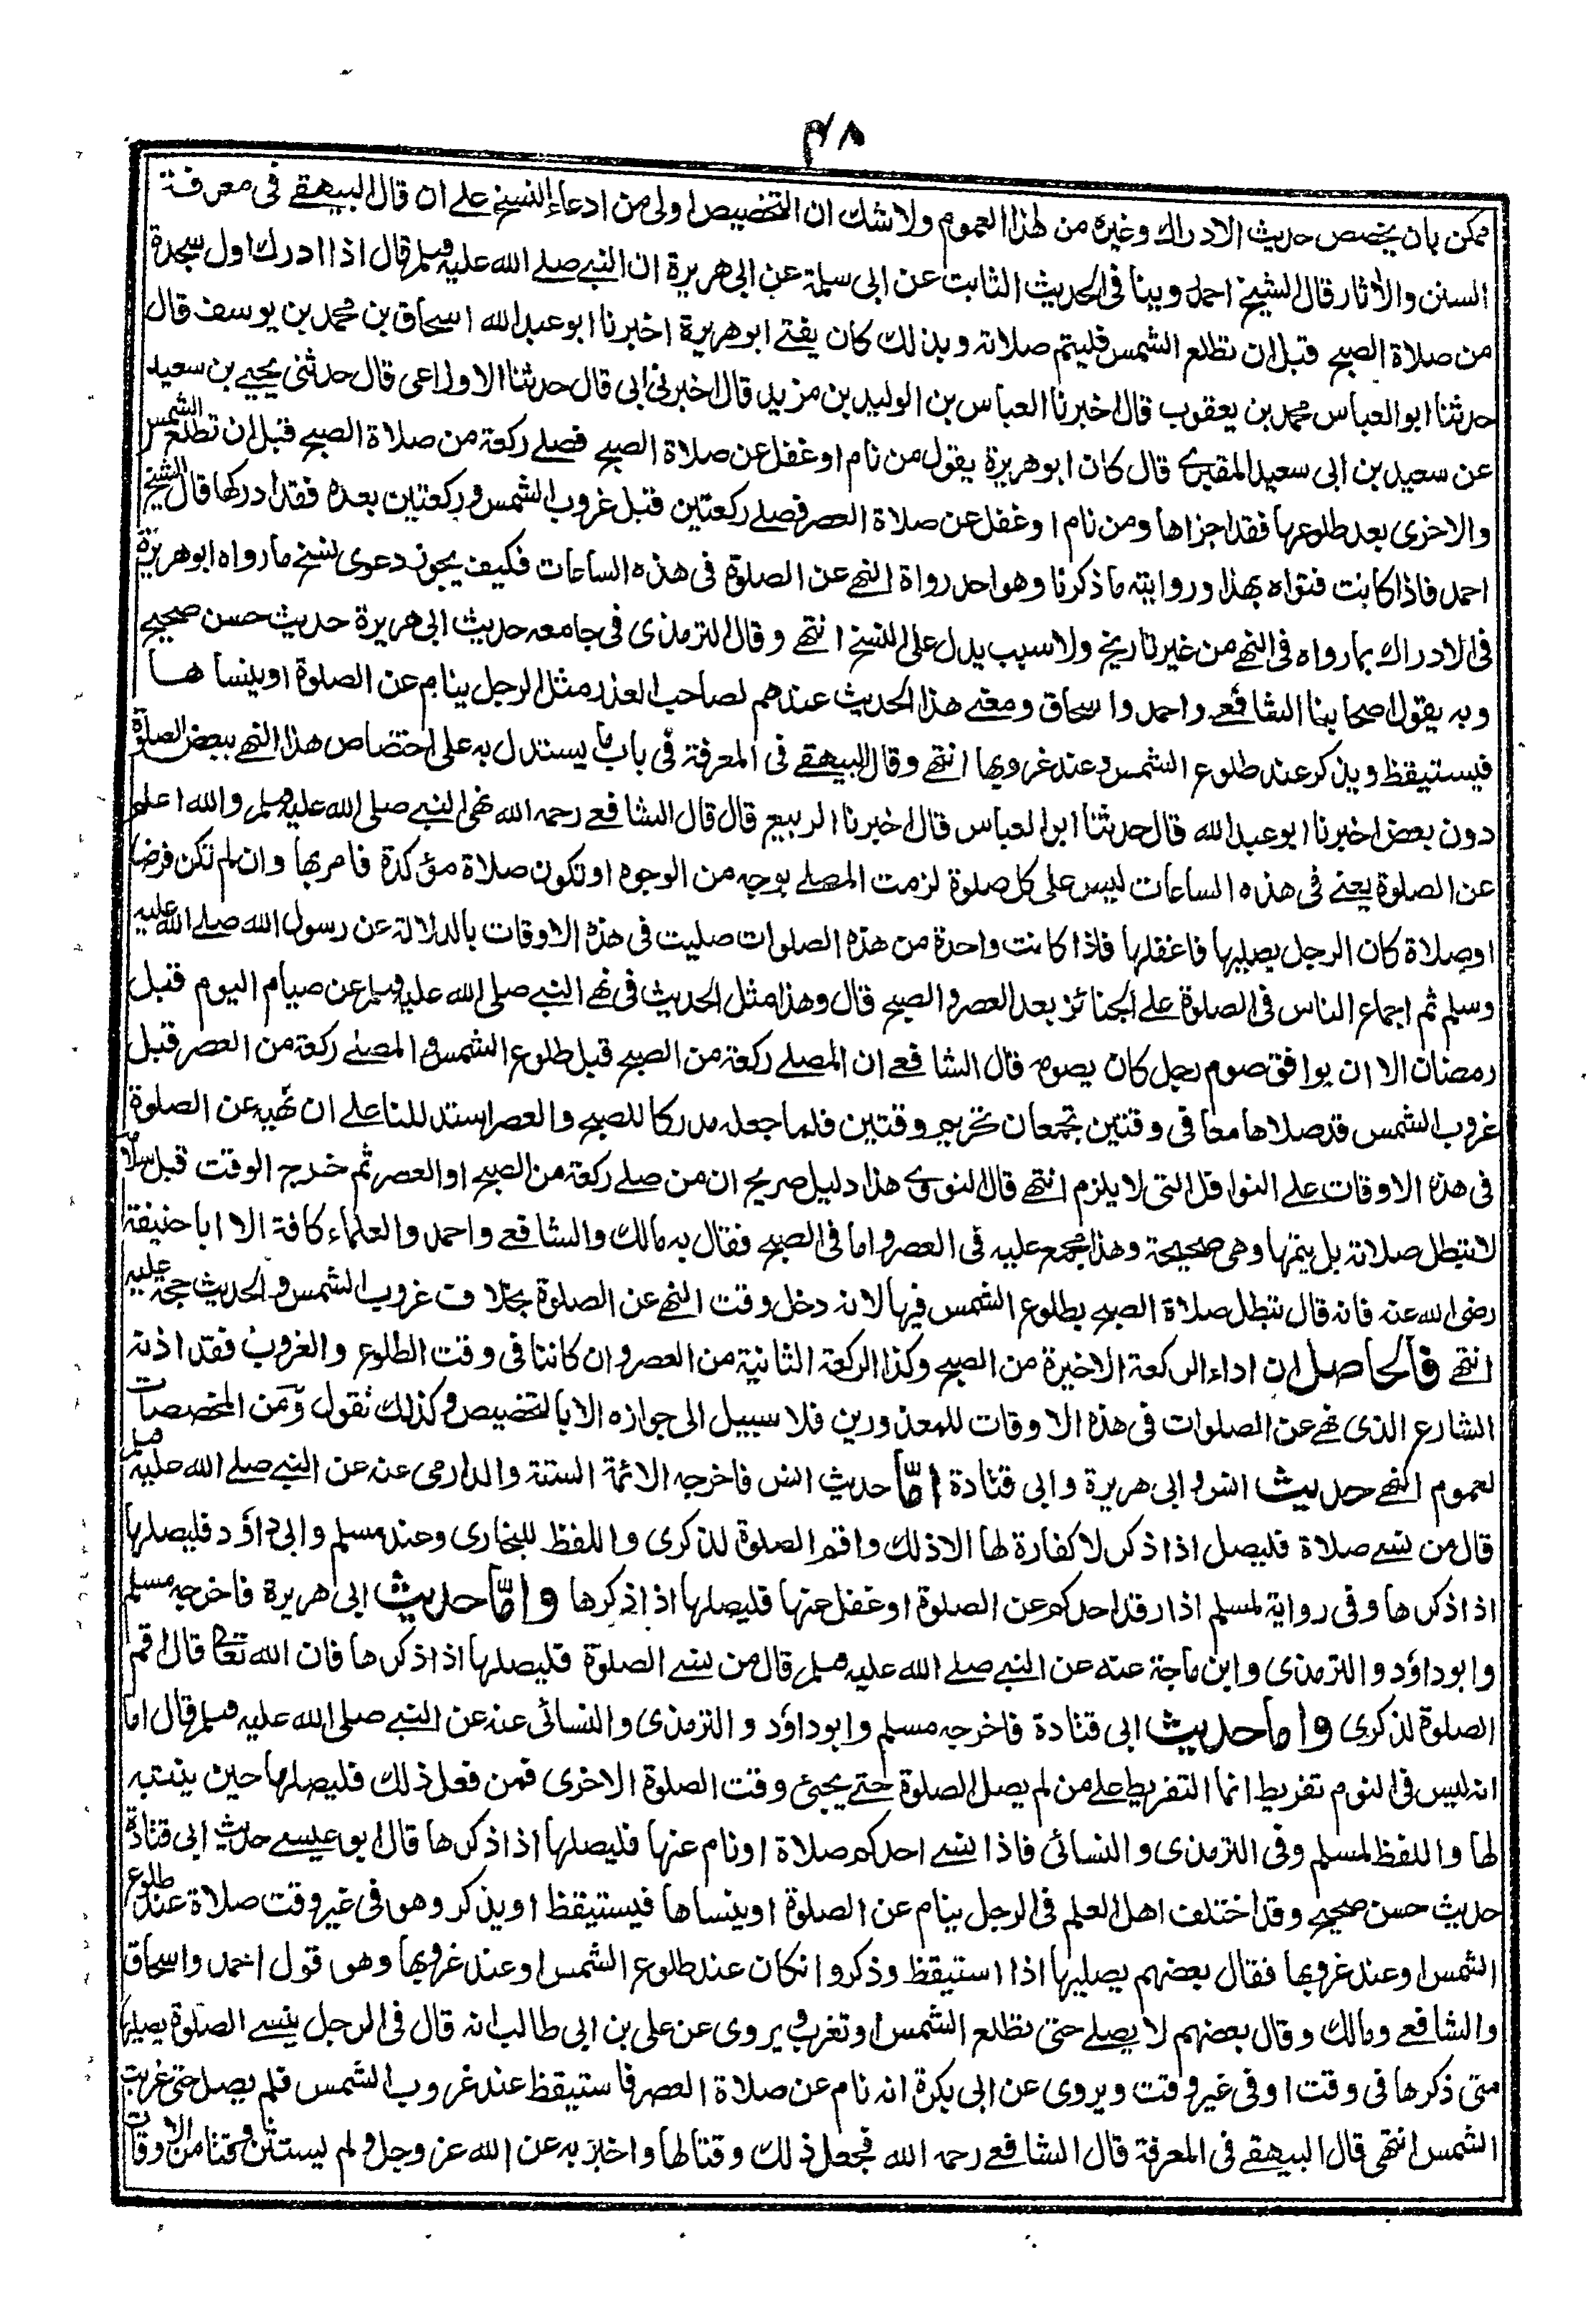 ۴۸
ممكن بان يخصص حديث الادراك وغيره من هذا العموم ولا شك ان التخصيص اولى من ادعاء النسخ على ان قال البيهقے فى معرفة
السنن والأثار قال الشيخ احمد وبينا فى الحديث الثابت عن ابى سلمة عن ابى هريرة ان النبے صلے الله عليه وسلم قال اذا ادرك اول سجدة
من صلاة الصبح قبل ان تطلع الشمس فليتم صلاته وبذلك كان يفتے ابو هريرة اخبرنا ابو عبد الله اسحاق بن محمد بن يوسف قال
حدثنا ابو العباس محمد بن يعقوب قال اخبرنا العباس بن الوليد بن مزيد قال اخبرنى ابى قال حدثنا الاوزاعى قال حدثنى يحيے بن سعيد
عن سعيد بن ابى سعيد المقبرے قال كان ابو هريرة يقول من نام او غفل عن صلاة الصبح فصلے ركعة من صلاة الصبح قبل ان تطلع الشمس
والاخرى بعد طلوعها فقد اجزاها ومن نام او غفل عن صلاة العصر فصلے ركعتين قبل غروب الشمس وركعتين بعده فقد ادركها قال الشيخ
احمد فاذا كانت فتواه بهذا وروايته ما ذكرنا وهو احد رواة النهے عن الصلوة فى هذه الساعات فكيف يجوز دعوى نسخ ما رواه ابو هريرة
فى الادراك بما رواه فى النهے من غير تاريخ ولا سبب يدل على النسخ انتهے وقال الترمذى فى جامعه حديث ابى هريرة حديث حسن صحيح
وبه يقول اصحابنا الشافعے واحمد واسحاق ومعنے هذا الحديث عندهم لصاحب العذر مثل الرجل ينام عن الصلوة او ينساها
فيستيقظ ويذكر عند طلوع الشمس وعند غروبها انتهے وقال البيهقے فى المعرفة فى باب ما يستدل به على اختصاص هذا النهے ببعض الصلوة
دون بعض اخبرنا ابو عبد الله قال حدثنا ابو العباس قال اخبرنا الربيع قال قال الشافعے رحمه الله نهى النبے صلى الله عليه وسلم والله اعلم
عن الصلوة يعنے فى هذه الساعات ليس على كل صلوة لزمت المصلے بوجه من الوجوه او تكون صلاة مؤكدة فامر بها وان لم تكن فرضا
او صلاة كان الرجل يصليها فاغفلها فاذا كانت واحدة من هذه الصلوات صليت فى هذه الاوقات بالدلالة عن رسول الله صلے الله عليه
وسلم ثم اجماع الناس فى الصلوة على الجنائز بعد العصر والصبح قال وهذا مثل الحديث فى نهے النبے صلى الله عليه وسلم عن صيام اليوم قبل
رمضان الا ان يوافق صوم رجل كان يصومه قال الشافعے ان المصلے ركعة من الصبح قبل طلوع الشمس والمصلے ركعة من العصر قبل
غروب الشمس قد صلاها معا فى وقتين تجمعان تحريم وقتين فلما جعله مدركا للصبح والعصر استدللنا على ان نهيه عن الصلوة
فى هذه الاوقات على النوافل التى لا يلزم انتهے قال النووى هذا دليل صريح ان من صلے ركعة من الصبح او العصر ثم خرج الوقت قبل سلامه
لا تبطل صلاته بل يتمها وهى صحيحة وهذا مجمع عليه فى العصر واما فى الصبح فقال به مالك والشافعے واحمد والعلماء كافة الا ابا حنيفة
رضى الله عنه فانه قال تبطل صلاة الصبح بطلوع الشمس فيها لانه دخل وقت النهے عن الصلوة بخلاف غروب الشمس والحديث حجة عليه
انتهے فالحاصل ان اداء الركعة الاخيرة من الصبح وكذا الركعة الثانية من العصر وان كانتا فى وقت الطلوع والغروب فقد اذنه
الشارع الذى نهے عن الصلوات فى هذه الاوقات للمعذورين فلا سبيل الى جوازه الا بالتخصيص وكذلك نقول ومن المخصصات
لعموم النهے حديث انس وابى هريرة وابى قتادة امّا حديث انس فاخرجه الائمة الستة والدارمى عنه عن النبے صلے الله عليه وسلم
قال من نسے صلاة فليصل اذا ذكر لا كفارة لها الا ذلك واقم الصلوة لذكرى واللفظ للبخارى وعند مسلم وابى داؤد فليصلها
اذا ذكرها وفى رواية لمسلم اذا رقد احدكم عن الصلوة او غفل عنها فليصلها اذا ذكرها وامّا حديث ابى هريرة فاخرجه مسلم
وابو داؤد والترمذى وابن ماجة عنه عن النبے صلے الله عليه وسلم قال من نسے الصلوة فليصلها اذا ذكرها فان الله تعا قال اقم
الصلوة لذكرى واما حديث ابى قتادة فاخرجه مسلم وابو داؤد والترمذى والنسائى عنه عن النبے صلى الله عليه وسلم قال اما
انه ليس فى النوم تفريط انما التفريط على من لم يصل الصلوة حتے يجئ وقت الصلوة الاخرى فمن فعل ذلك فليصلها حين ينتبه
لها واللفظ لمسلم وفى الترمذى والنسائى فاذا نسے احدكم صلاة او نام عنها فليصلها اذا ذكرها قال ابو عيسے حديث ابى قتادة
حديث حسن صحيح وقد اختلف اهل العلم فى الرجل ينام عن الصلوة او ينساها فيستيقظ او يذكر وهو فى غير وقت صلاة عند طلوع
الشمس او عند غروبها فقال بعضهم يصليها اذا استيقظ وذكر وانكان عند طلوع الشمس او عند غروبها وهو قول احمد واسحاق
والشافعے ومالك وقال بعضهم لا يصلے حتى تطلع الشمس او تغرب ويروى عن على بن ابى طالب انه قال فى الرجل ينسے الصلوة يصليها
متى ذكرها فى وقت او فى غير وقت ويروى عن ابى بكرة انه نام عن صلاة العصر فاستيقظ عند غروب الشمس فلم يصل حتى غربت
الشمس انتهى قال البيهقے فى المعرفة قال الشافعے رحمه الله فجعل ذلك وقتا لها واخبر به عن الله عز وجل ولم يستثن وقتا من الاوقات